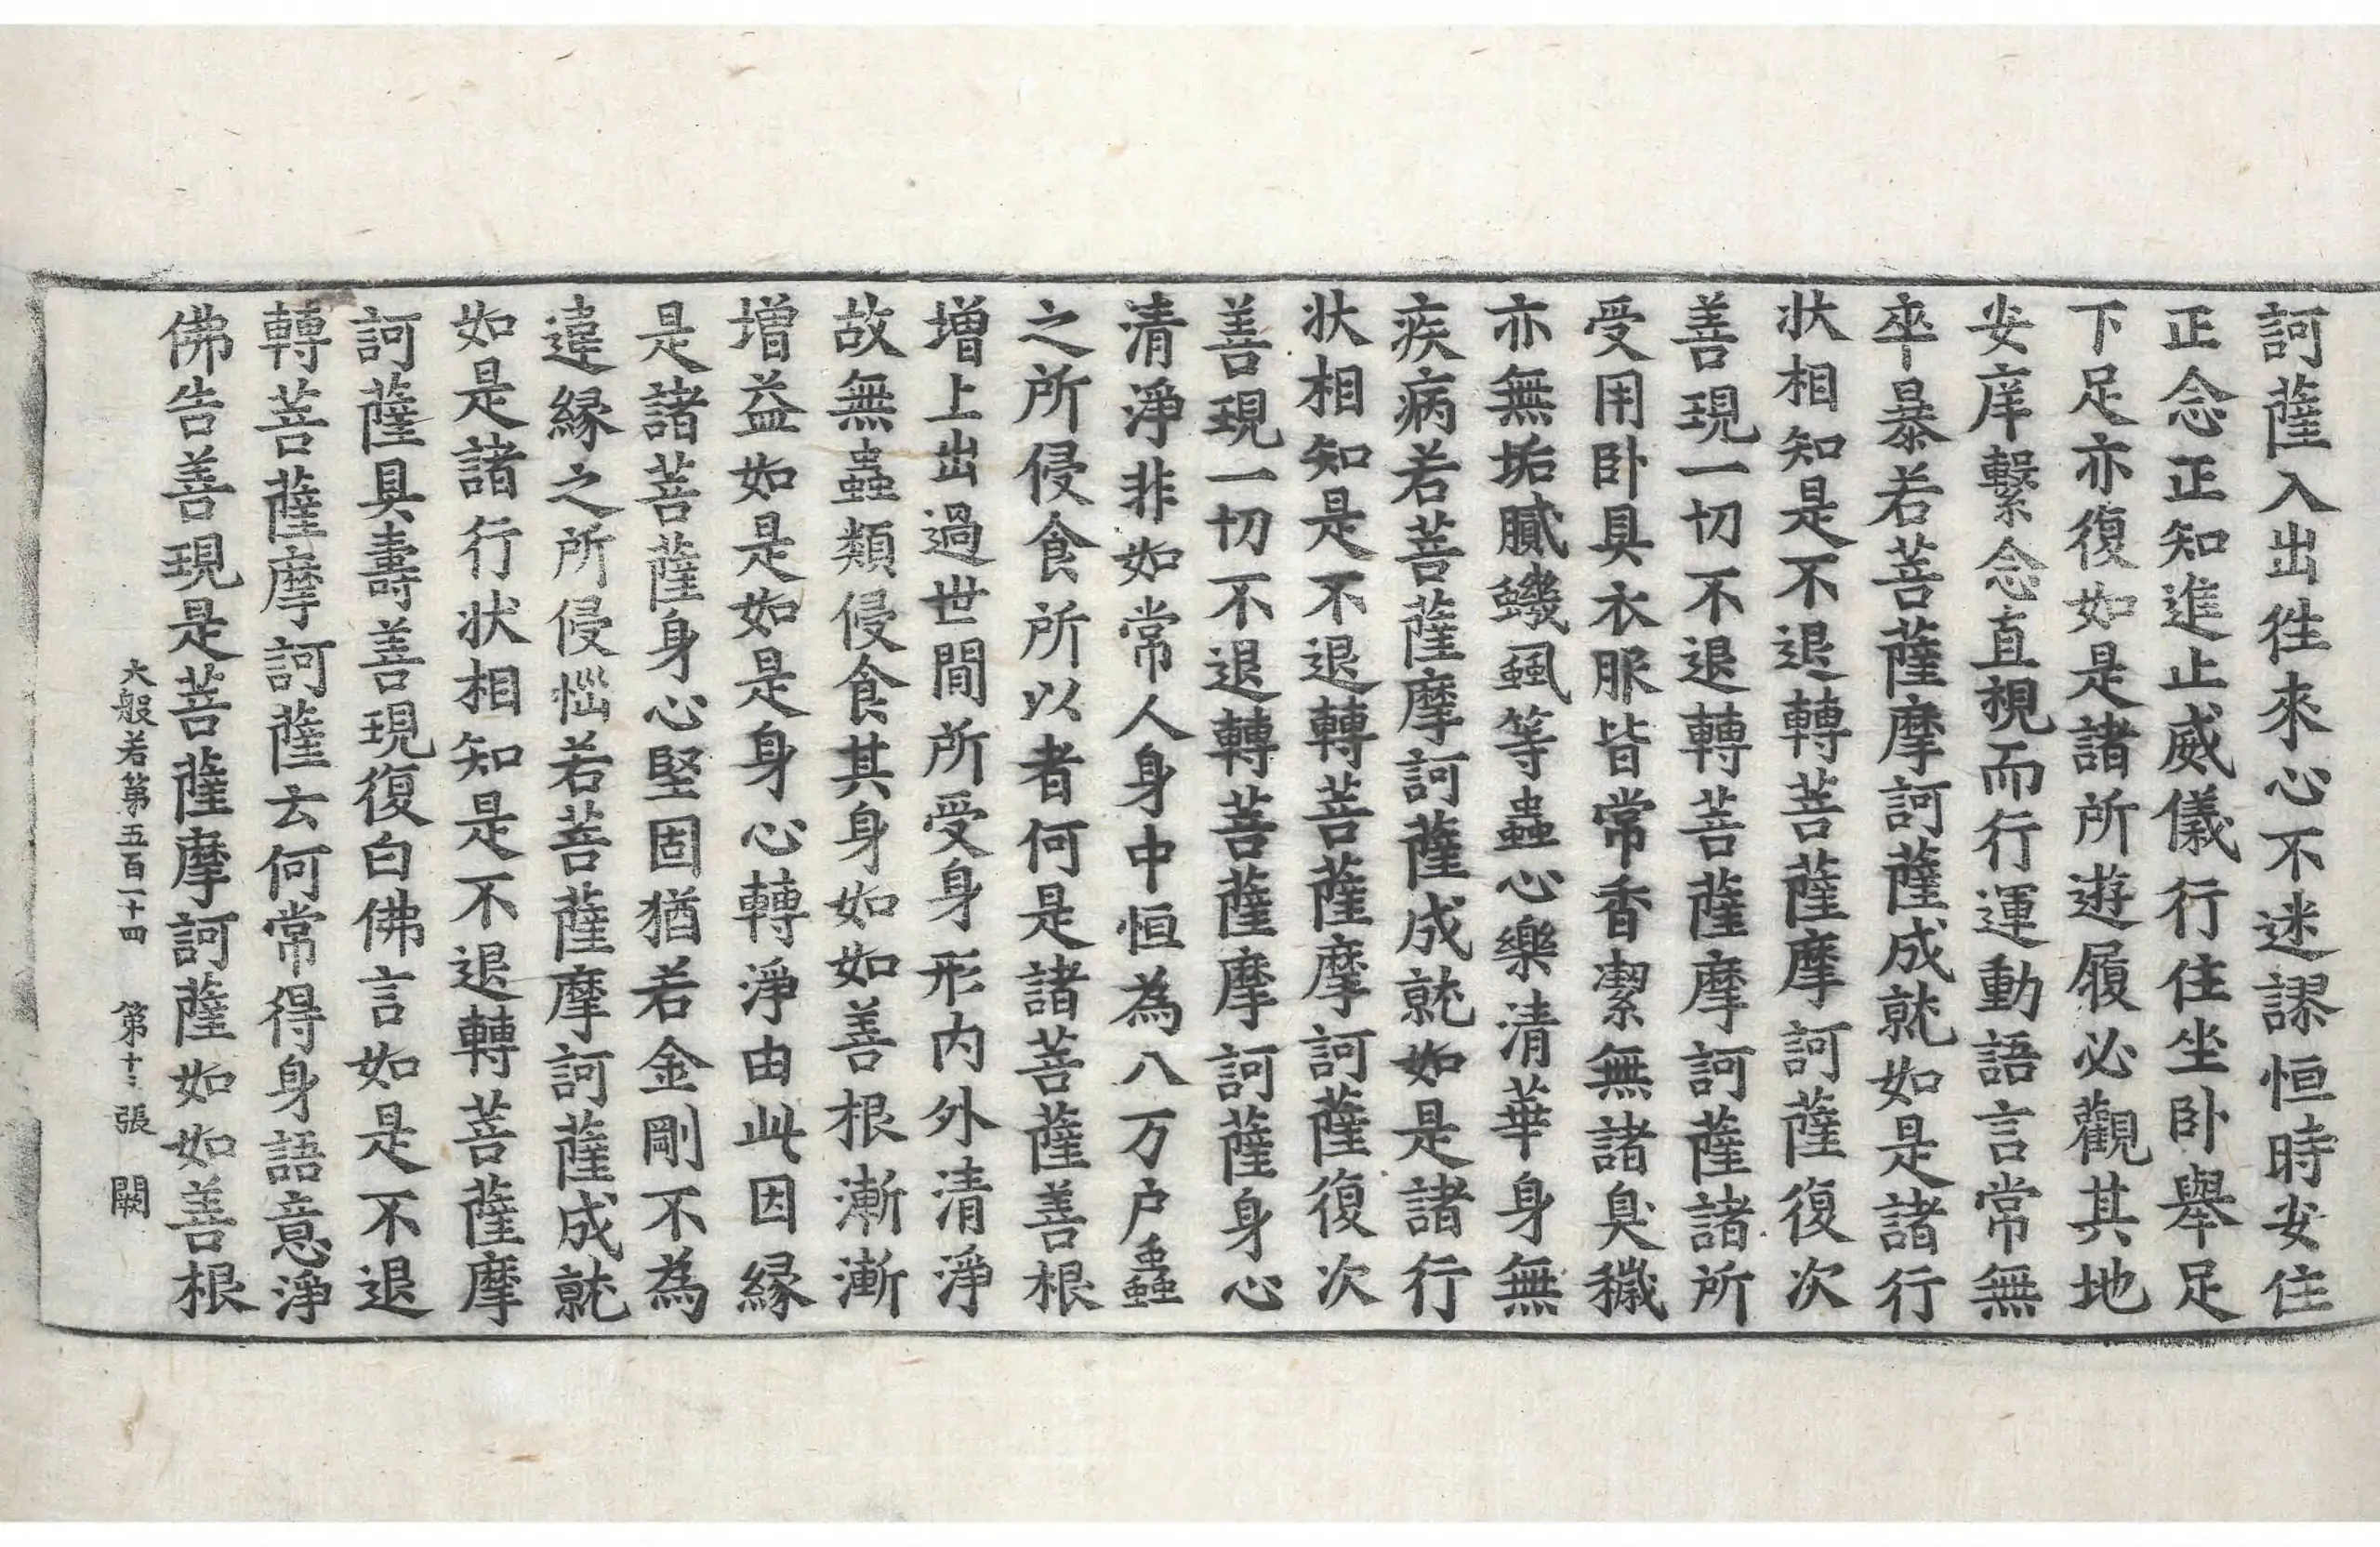 訶薩入出徃來心不迷謬恒時安住
正念正知進止威儀行住坐卧舉足
下足亦復如是諸所遊履必觀其地
安庠繫念直視而行運動語言常無
卒暴若菩薩摩訶薩成就如是諸行
狀相知是不退轉菩薩摩訶薩復次
善現一切不退轉菩薩摩訶薩諸所
受用卧具衣服皆常香潔無諸臭穢
亦無垢膩蟣蝨等蟲心樂清華身無
疾病若菩薩摩訶薩成就如是諸行
狀相知是不退轉菩薩摩訶薩復次
善現一切不退轉菩薩摩訶薩身心
清淨非如常人身中恒為八万户蟲
之所侵食所以者何是諸菩薩善根
增上出過世間所受身形内外清淨
故無蟲類侵食其身如如善根漸漸
增益如是如是身心轉淨由此因緣
是諸菩薩身心堅固猶若金剛不為
違緣之所侵惱若菩薩摩訶薩成就
如是諸行狀相知是不退轉菩薩摩
訶薩具壽善現復白佛言如是不退
轉菩薩摩訶薩云何常得身語意淨
佛告善現是菩薩摩訶薩如如善根
大般若第五百一十四 第十二張 闕